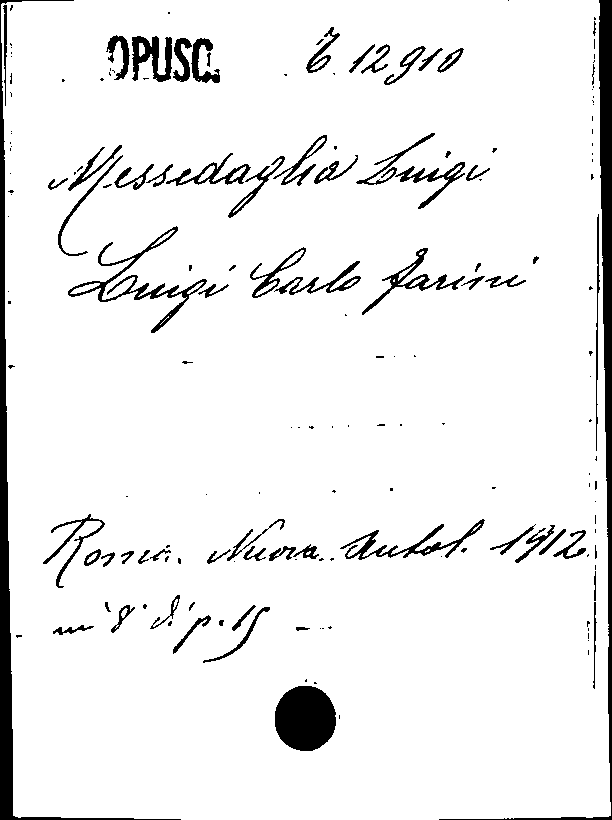 OPUSC. C 12910
Messedaglia Luigi
Luigi Carlo Farini
Roma. Nuova Antol. 1912
in 8° di p. 15